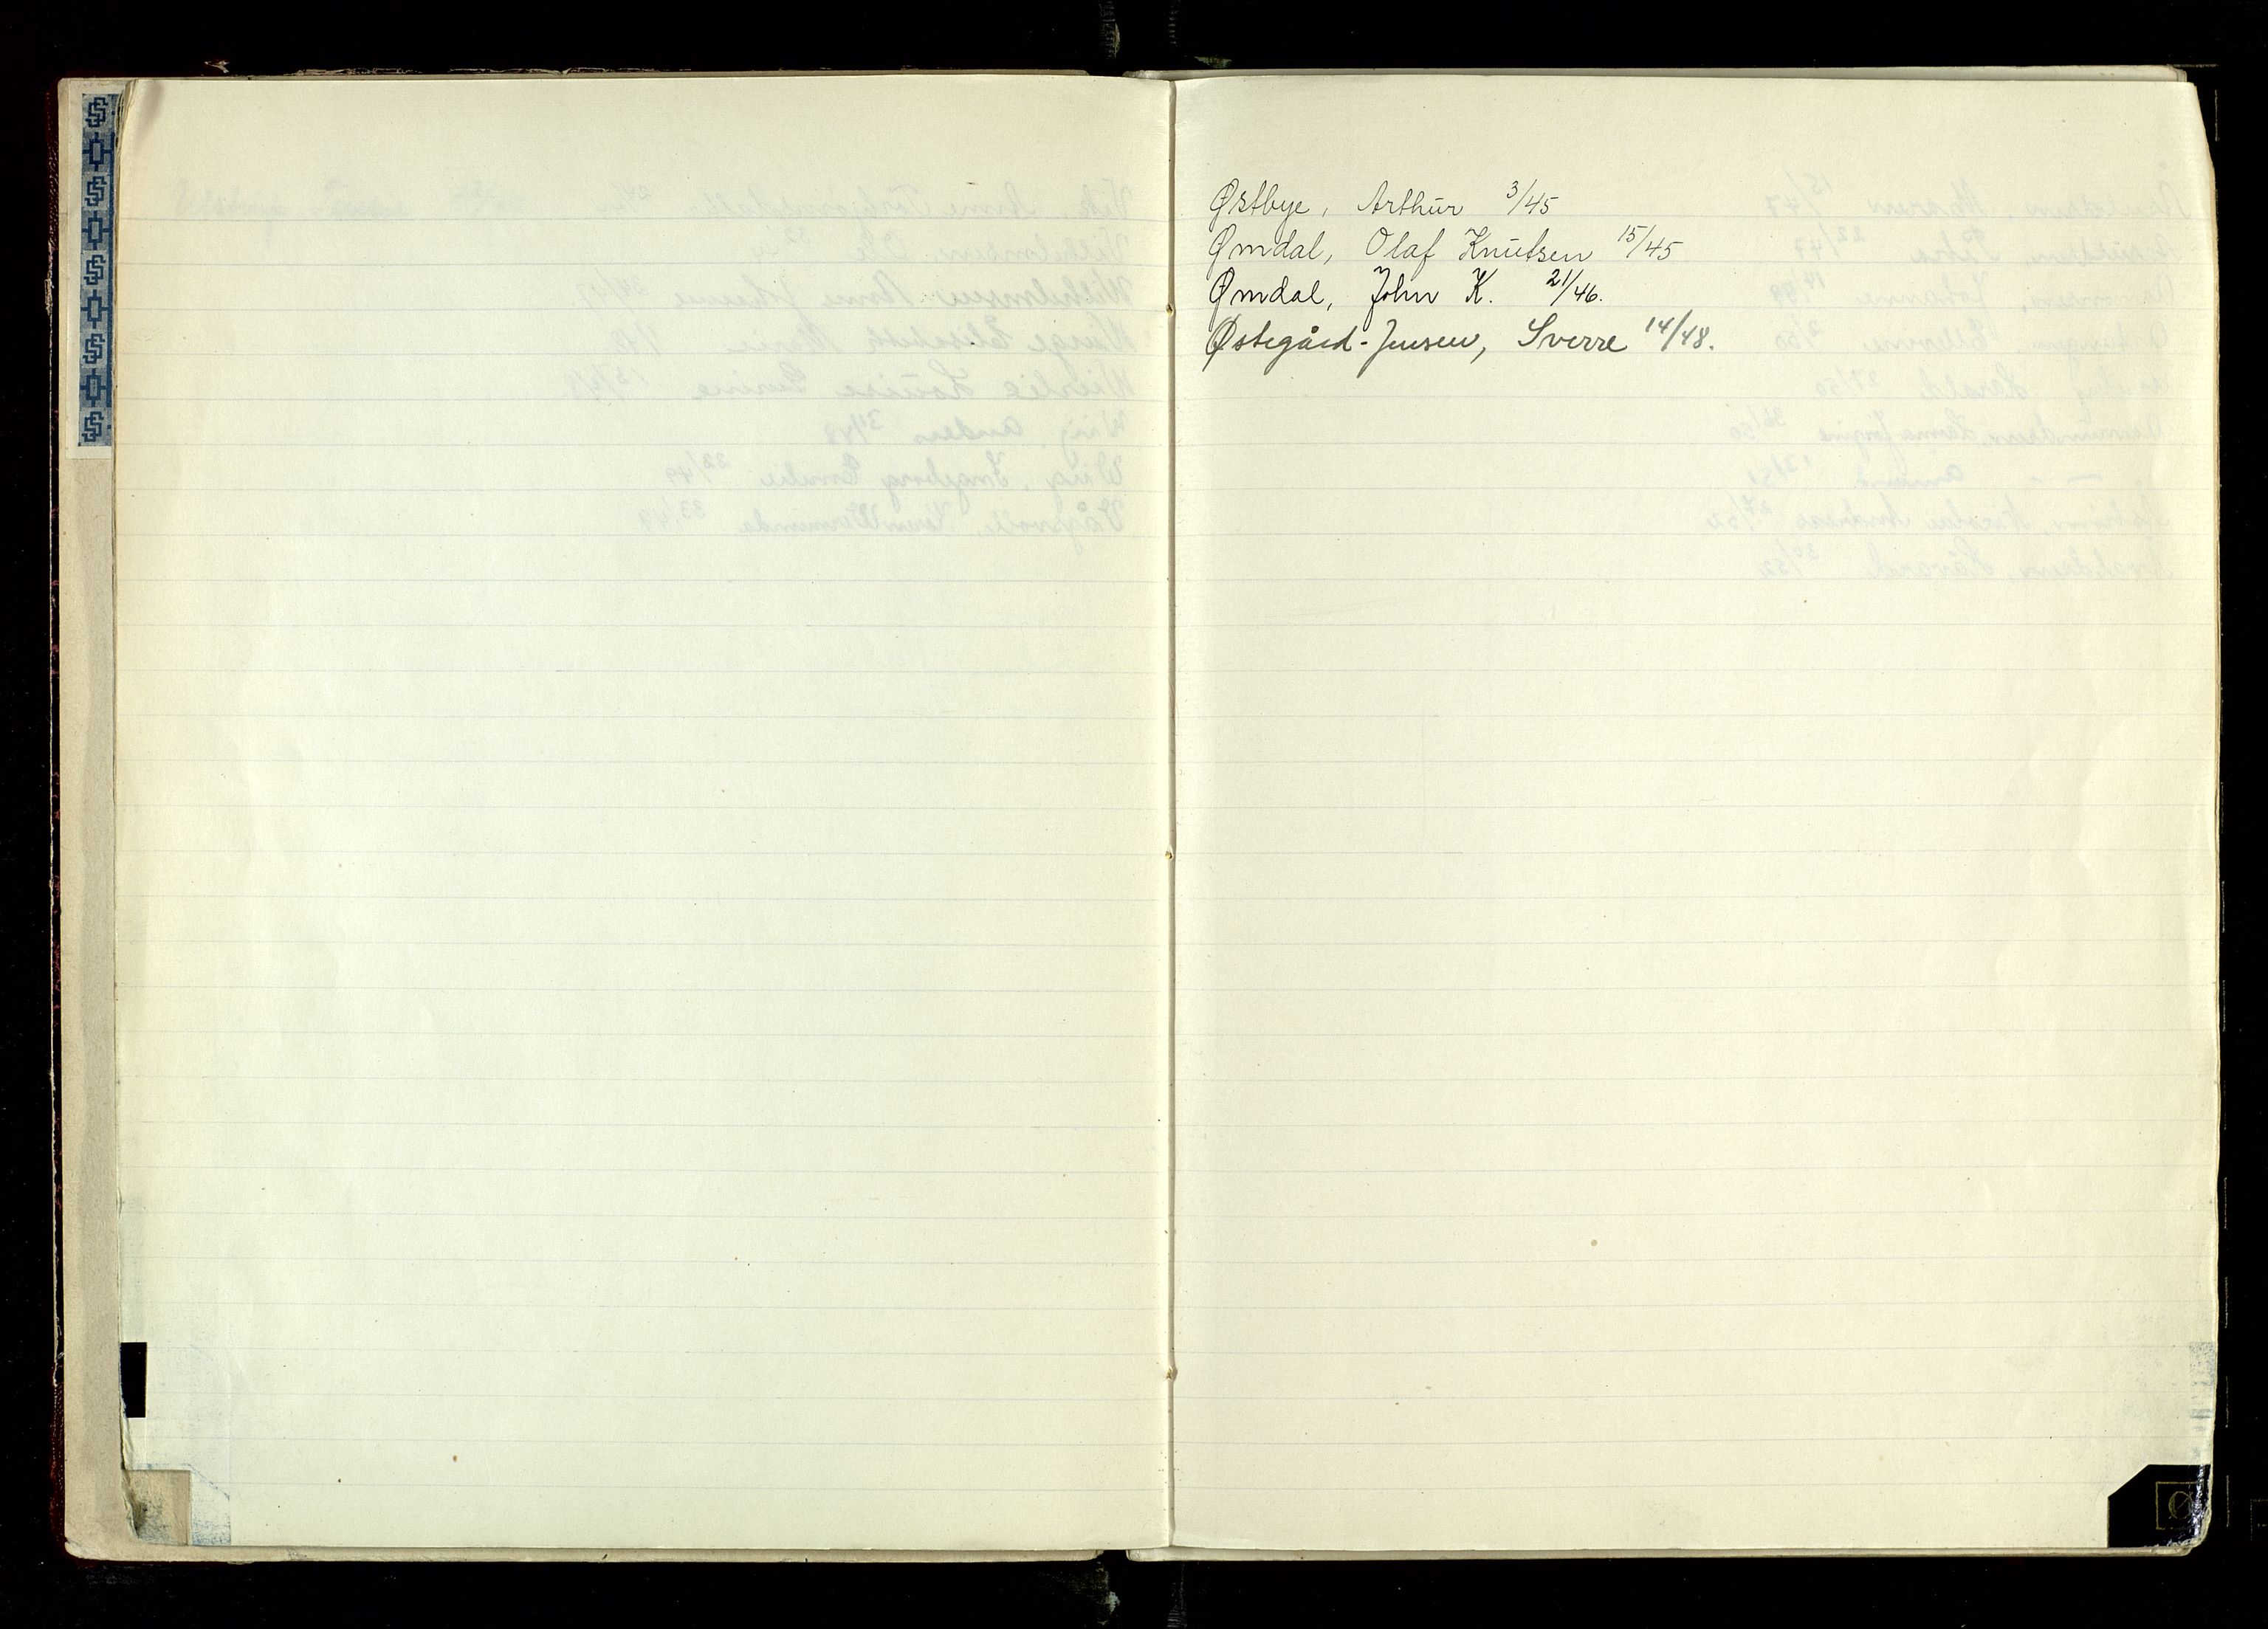 Østbye, Arthur 3/45
Ømdal, Olaf Knutsen 15/45
Ømdal, John K. 21/46.
Østegård-Jensen, Sverre 14/48.
Ø